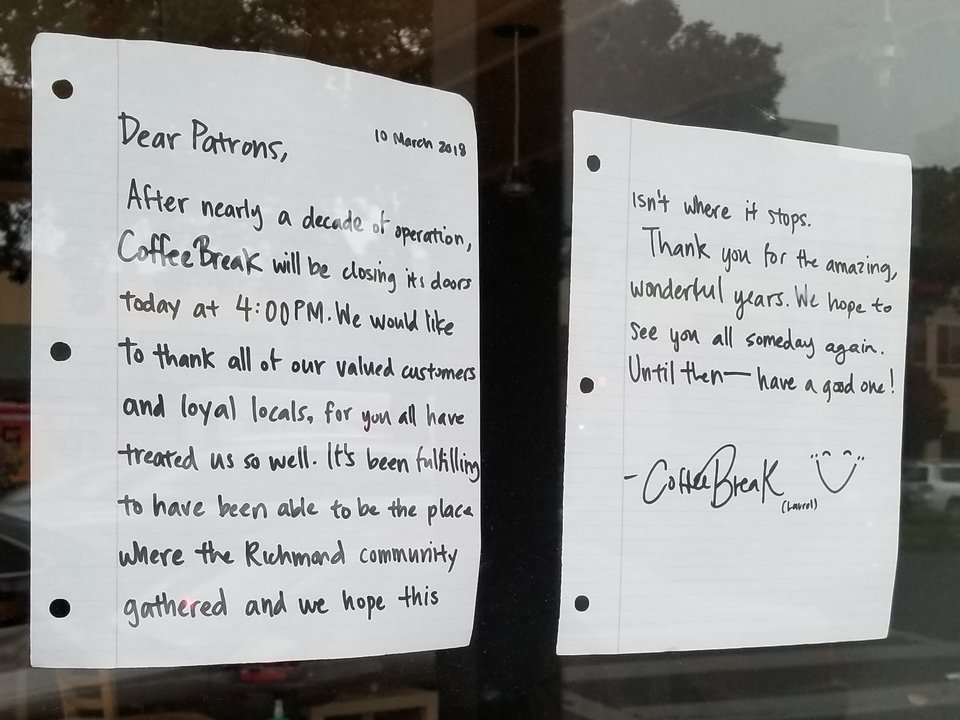 10 March 2018
Dear Patrons,
After nearly a decade of operation,
CoffeeBreak will be closing its doors
today at 4:00PM. We would like
to thank all of our valued customers
and loyal locals, for you all have
treated us so well. It's been fulfilling
to have been able to be the place
where the Richmond community
gathered and we hope this
isn't where it stops.
Thank you for the amazing,
wonderful years. We hope to
see you all someday again.
Until then— have a good one!
- CoffeeBreak
(Laurel)